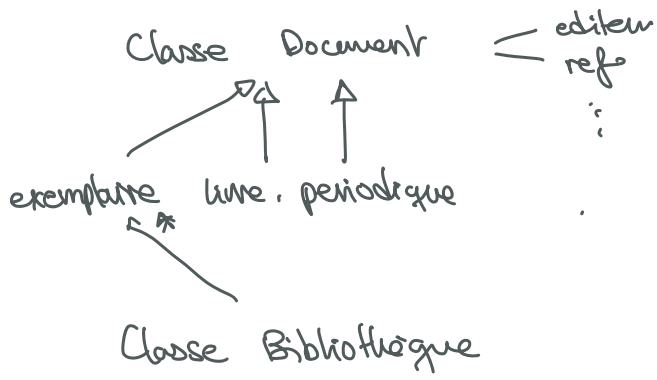 Classe Document
editeur
ref
exemplaire * livre. periodique
Classe Bibliothèque